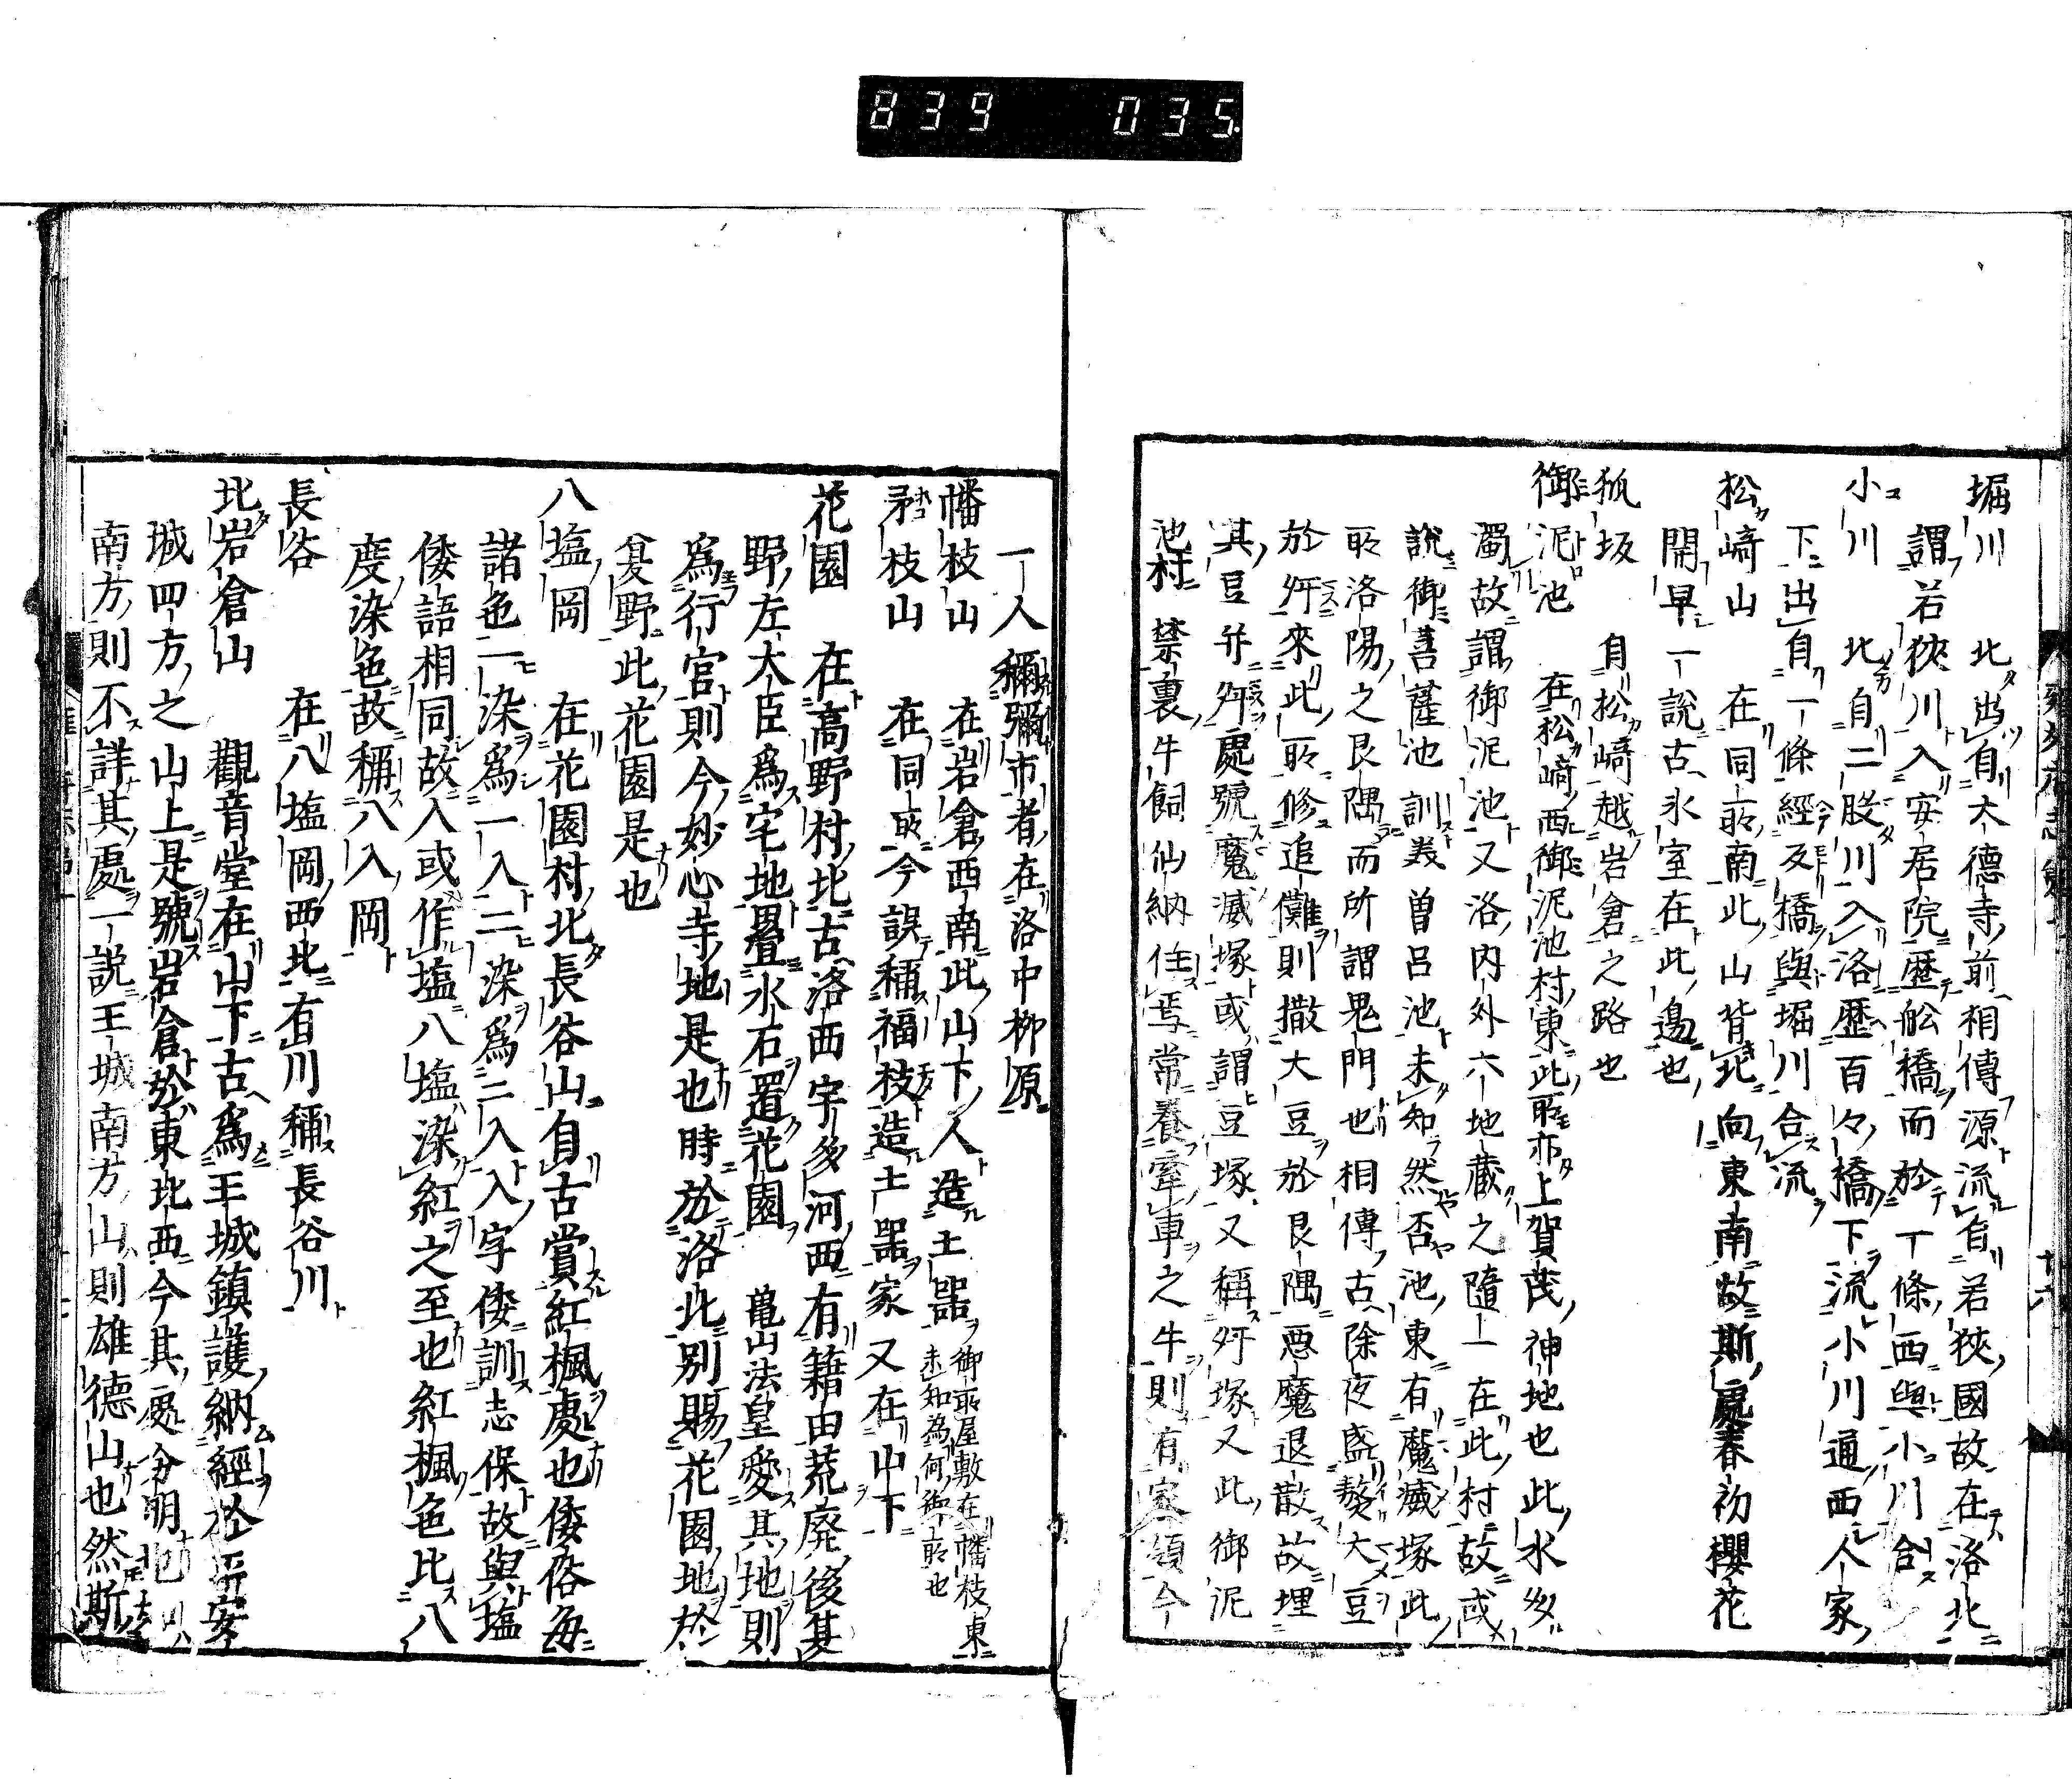 839 035
堀川 北出自大德寺前相傳源流自若狹國故在洛北
謂若狹川入安居院歷舩橋而於一條西與小川合
小川 北自二股川入洛歷百々橋下流小川通西人家
下出自一條經反橋與堀川合流
松﨑山 在同所南此山背北向東南故斯處春初櫻花
開早一說古氷室在此邊也
狐坂 自松﨑越岩倉之路也
御泥池 在松﨑西御泥池村東北所亦上賀茂神地也此水
濁故謂御泥池又洛內外六地藏之隨一在此村故或
說御菩薩池訓美曽呂池未知然否池東有魔滅塚此
所洛陽之艮隅而所謂鬼門也相傳古除夜盛熬大豆
於舛來此所修追儺則撒大豆於艮隅惡魔退散故埋
其豆并舛處號魔滅塚或謂豆塚又稱舛塚又此御泥
池村禁裏牛飼仙納住焉常養牽車之牛則有家領今
一人稱彌市者在洛中栁原
幡枝山 在岩倉西南此山下人造土器御所屋敷在幡枝東未知為何御所也
矛枝山 在同所今誤稱福枝造土器家又在山下
花園 在高野村北古洛西宇多河西有籍由荒廢後其
野左大臣爲宅地疊水石置花園 亀山法皇愛其地則
爲行宮則今妙心寺地是也時於洛北別賜花園地於
夏野此花園是也
八塩岡 在花園村北長谷山自古賞紅楓處也倭俗每
諸色一染爲一入二染爲二入入字倭訓志保故與塩
倭語相同故入或作塩八塩染紅之至也紅楓色比八
度染色故稱八入岡
長谷 在八塩岡西北有川稱長谷川
北岩倉山 觀音堂在山下古爲王城鎮護納經於平安
城四方之山上是號岩倉於東北西今其處分明也
南方則不詳其處一說王城南方山則雄德山也然斯